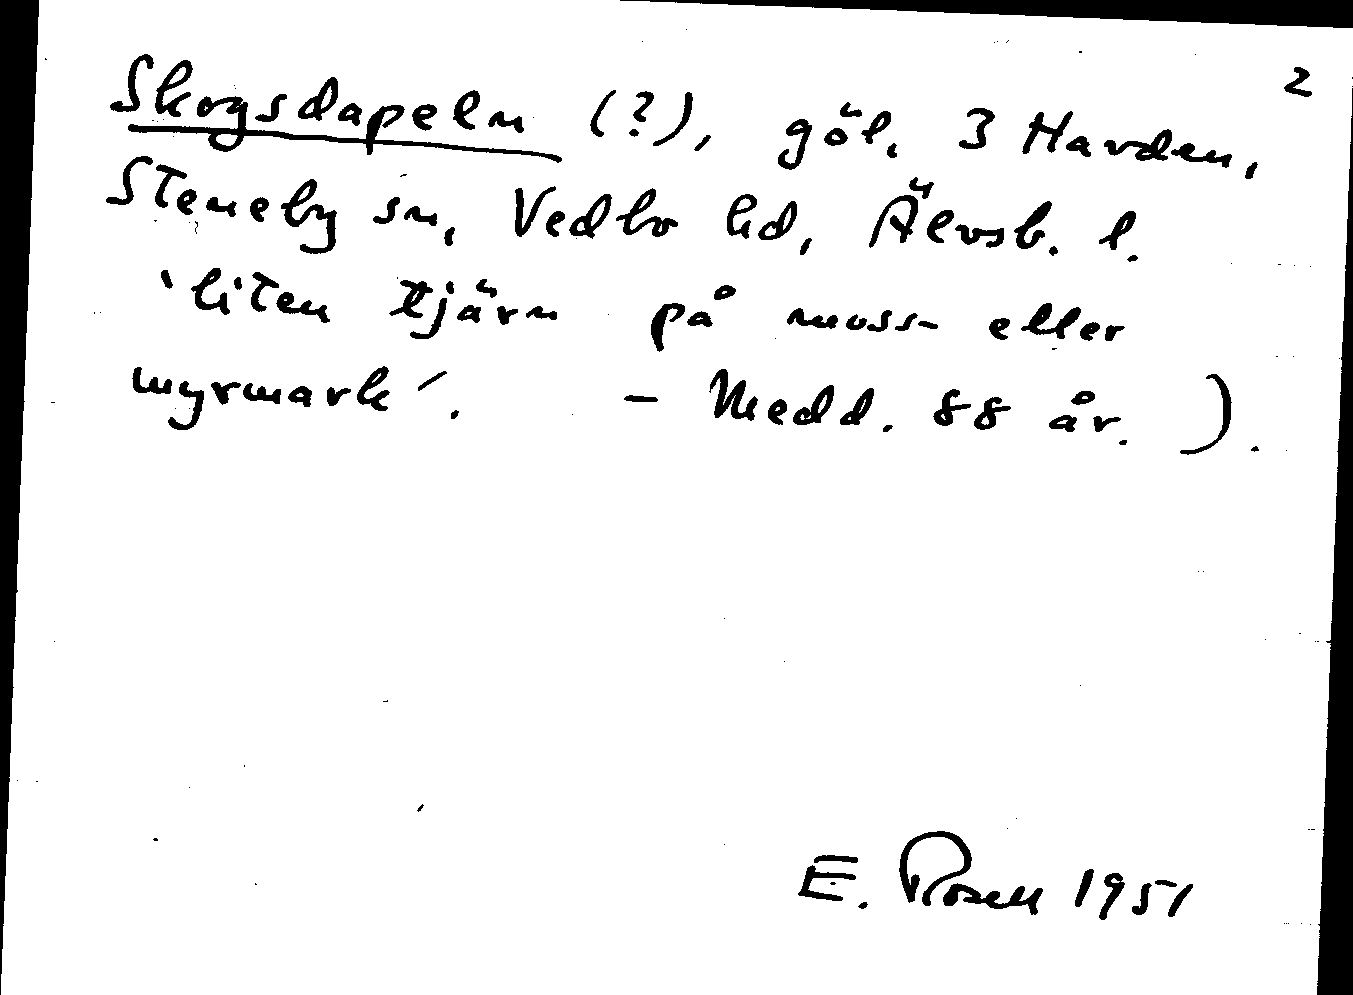 2
Skogsdapeln (?), göl. 3 Harden,
Steneby sn, Vedbo hd, Älvsb. l.
'liten tjärn på moss- eller
myrmark'. - Medd. 88 år. ).
E. Rosell 1951